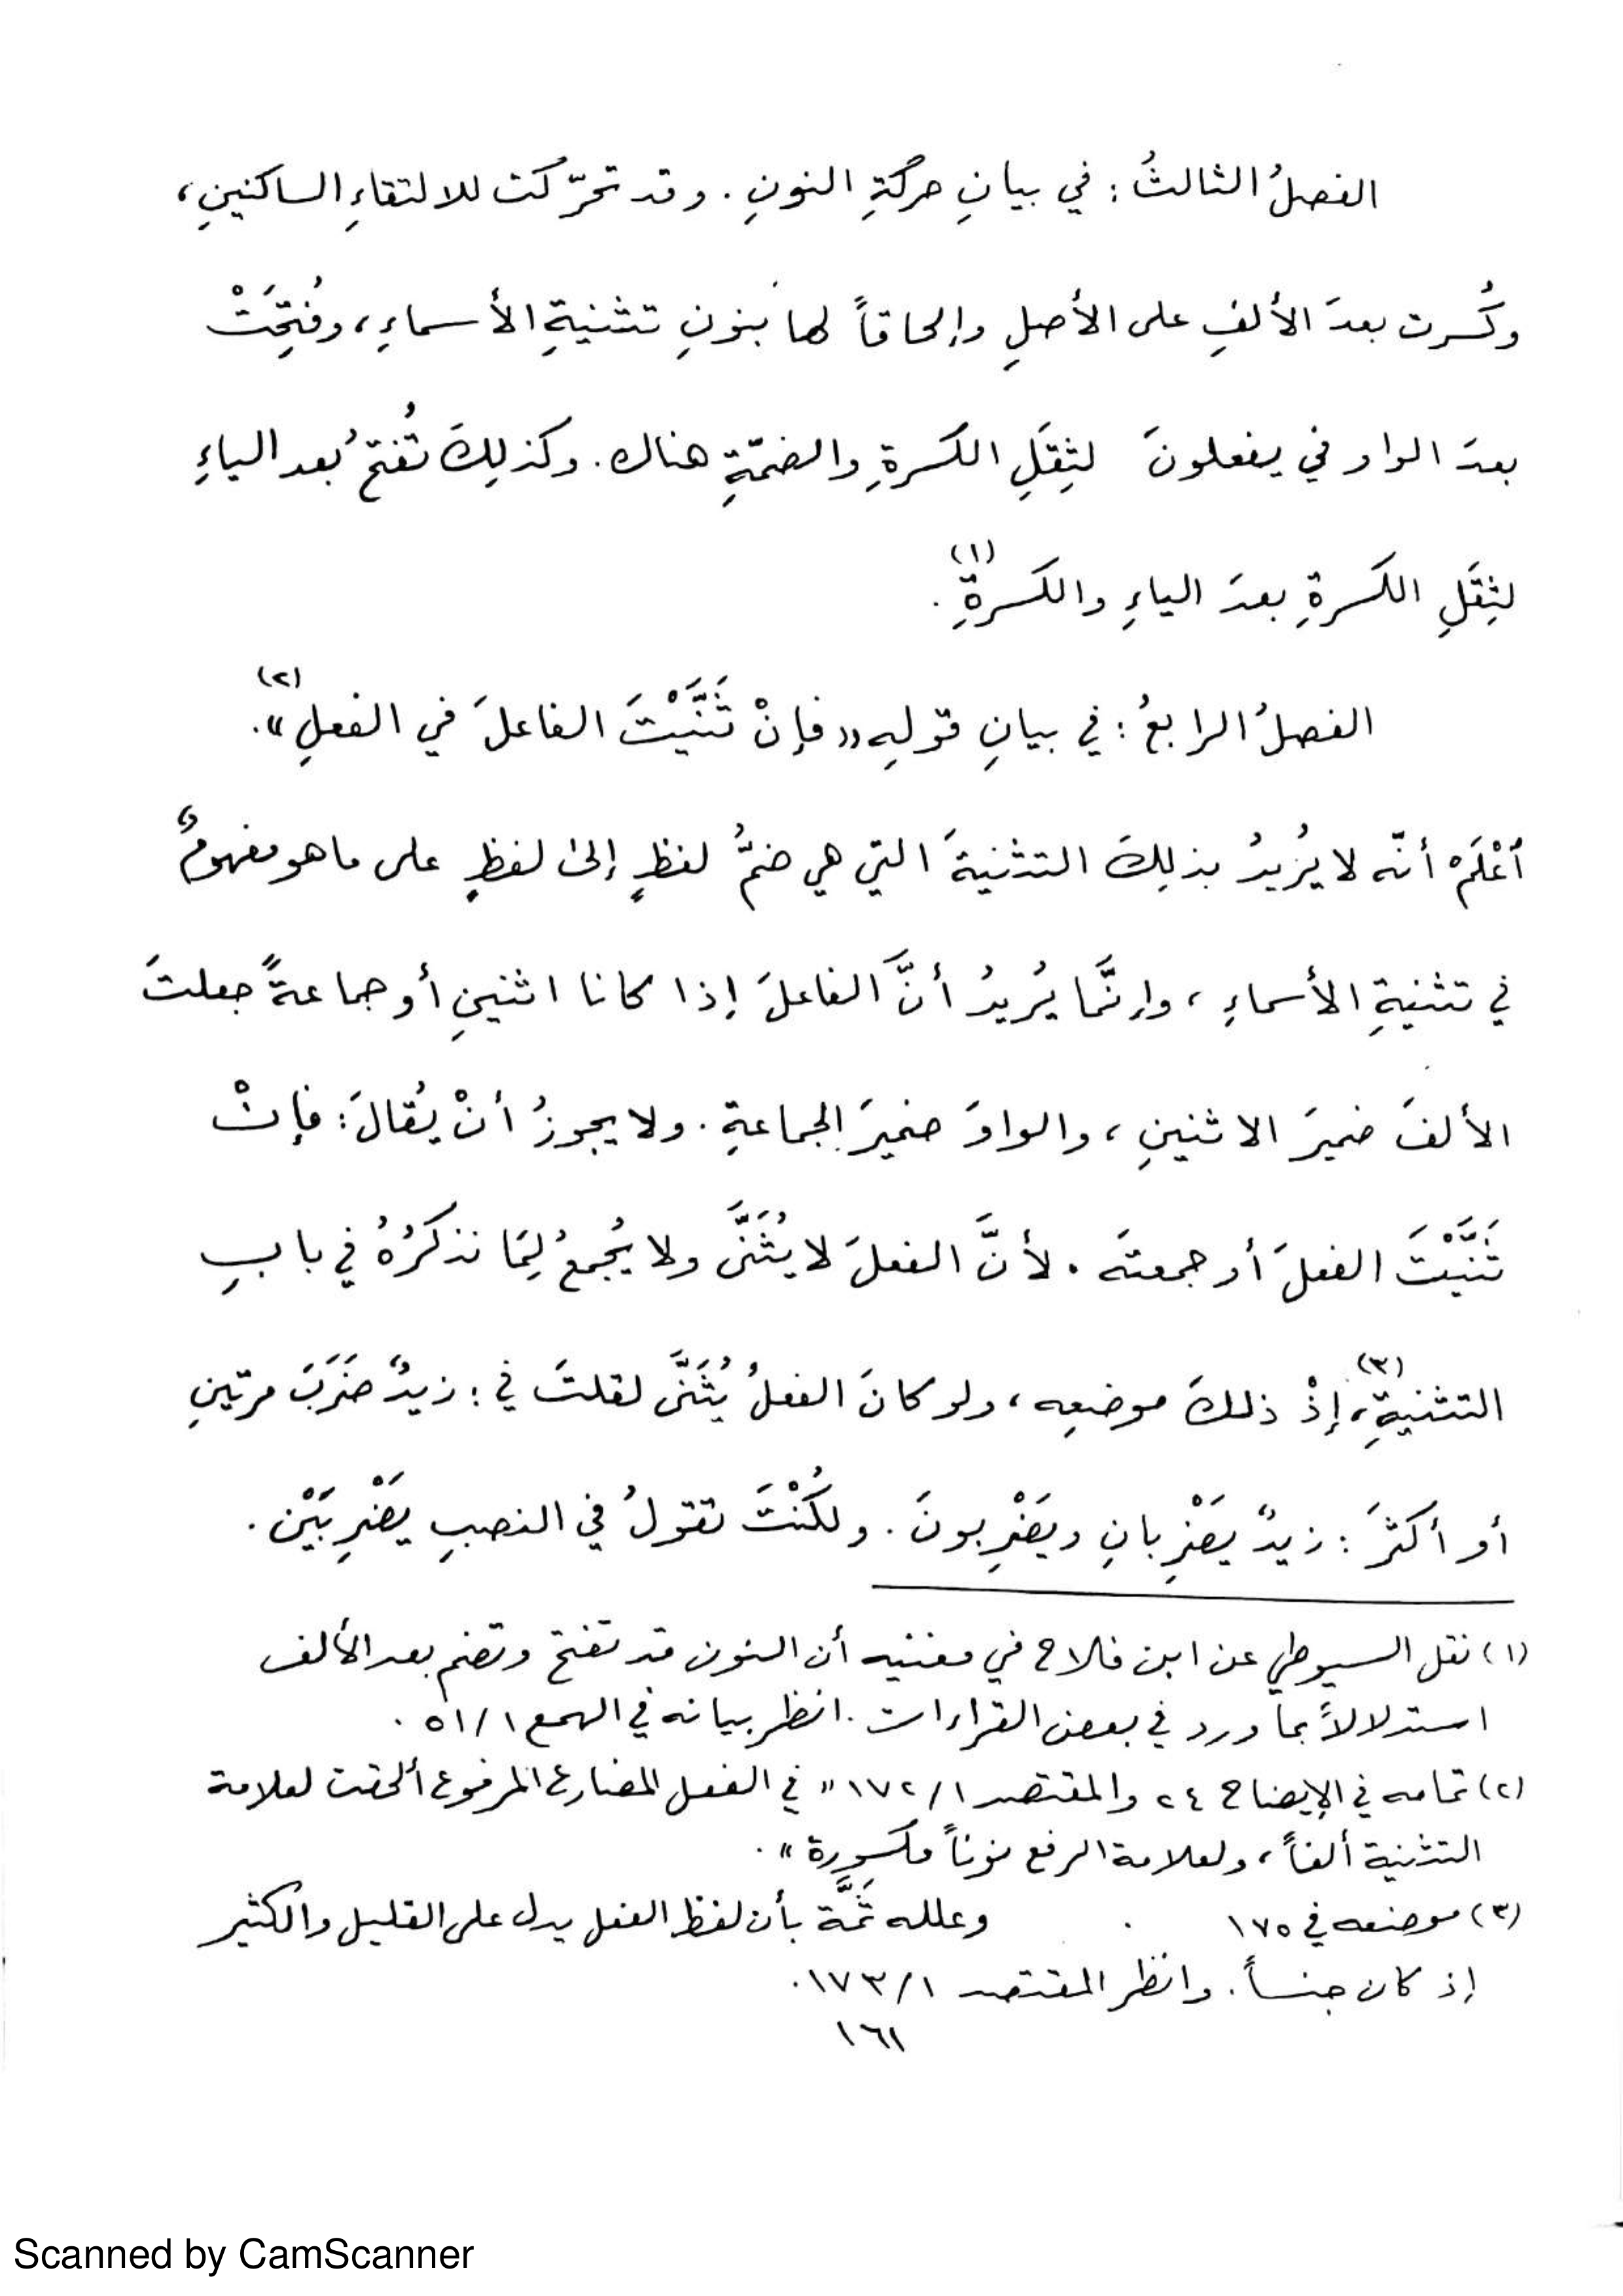 الفصلُ الثالثُ : في بيانِ حركةِ النونِ . وقد تحرّكت للالتقاءِ الساكنينِ ،
وكُسرت بعدَ الألفِ على الأصلِ وإلحاقاً لها بنونِ تثنيةِ الأسماءِ ، وفُتِحَتْ
بعدَ الواو في يفعلونَ لثِقَلِ الكسرةِ والضمّةِ هناك . وكذلِكَ تُفتحُ بعد الياءِ
لثِقَلِ الكسرةِ بعدَ الياءِ والكسرةِ (١) .
الفصلُ الرابعُ : في بيانِ قولِهِ « فإنْ ثَنَّيْتَ الفاعلَ في الفعلِ (٢) » .
اَعْلَمْ أنّه لا يُريدُ بذلِكَ التثنيةَ التي هي ضمُّ لفظٍ إلى لفظٍ على ما هو مفهومٌ
في تثنيةِ الأسماءِ ، وإنَّما يُريدُ أنَّ الفاعلَ إذا كانا اثنينِ أو جماعةً جعلتَ
الألفَ ضميرَ الاثنينِ ، والواوَ ضميرَ الجماعةِ . ولا يجوزُ أنْ يُقالَ : فإنْ
ثَنَّيْتَ الفعلَ أو جمعتَه . لأنَّ الفعلَ لا يُثَنَّى ولا يُجمعُ لِمَا نذكرُهُ في بابِ
التثنيةِ (٣) ، إذْ ذلكَ موضعِه ، ولو كانَ الفعلُ يُثَنَّى لقلتَ في : زيدٌ ضَرَبَ مرتينِ
أو أكثرَ : زيدٌ يَضْرِبانِ ويَضْرِبونَ . ولكُنْتَ تقولُ في النصبِ يَضْرِبَيْن .
(١) نقل السيوطي عن ابن فلاح في مغنيه أن النون قد تفتح وتضم بعد الألف
استدلالاً بما ورد في بعض القراءات . انظر بيانه في الهمع ١/ ٥١ .
(٢) تمامه في الإيضاح ٢٤ والمقتصد ١/ ١٧٢ « في الفعل المضارع المرفوع ألحقت لعلامة
التثنية ألفاً ، ولعلامة الرفع نوناً مكسورة » .
(٣) موضعه في ١٧٥ . وعلله ثَمَّة بأن لفظ الفعل يدل على القليل والكثير
إذ كان جنساً . وانظر المقتصد ١/ ١٧٣ .
١٦١
Scanned by CamScanner